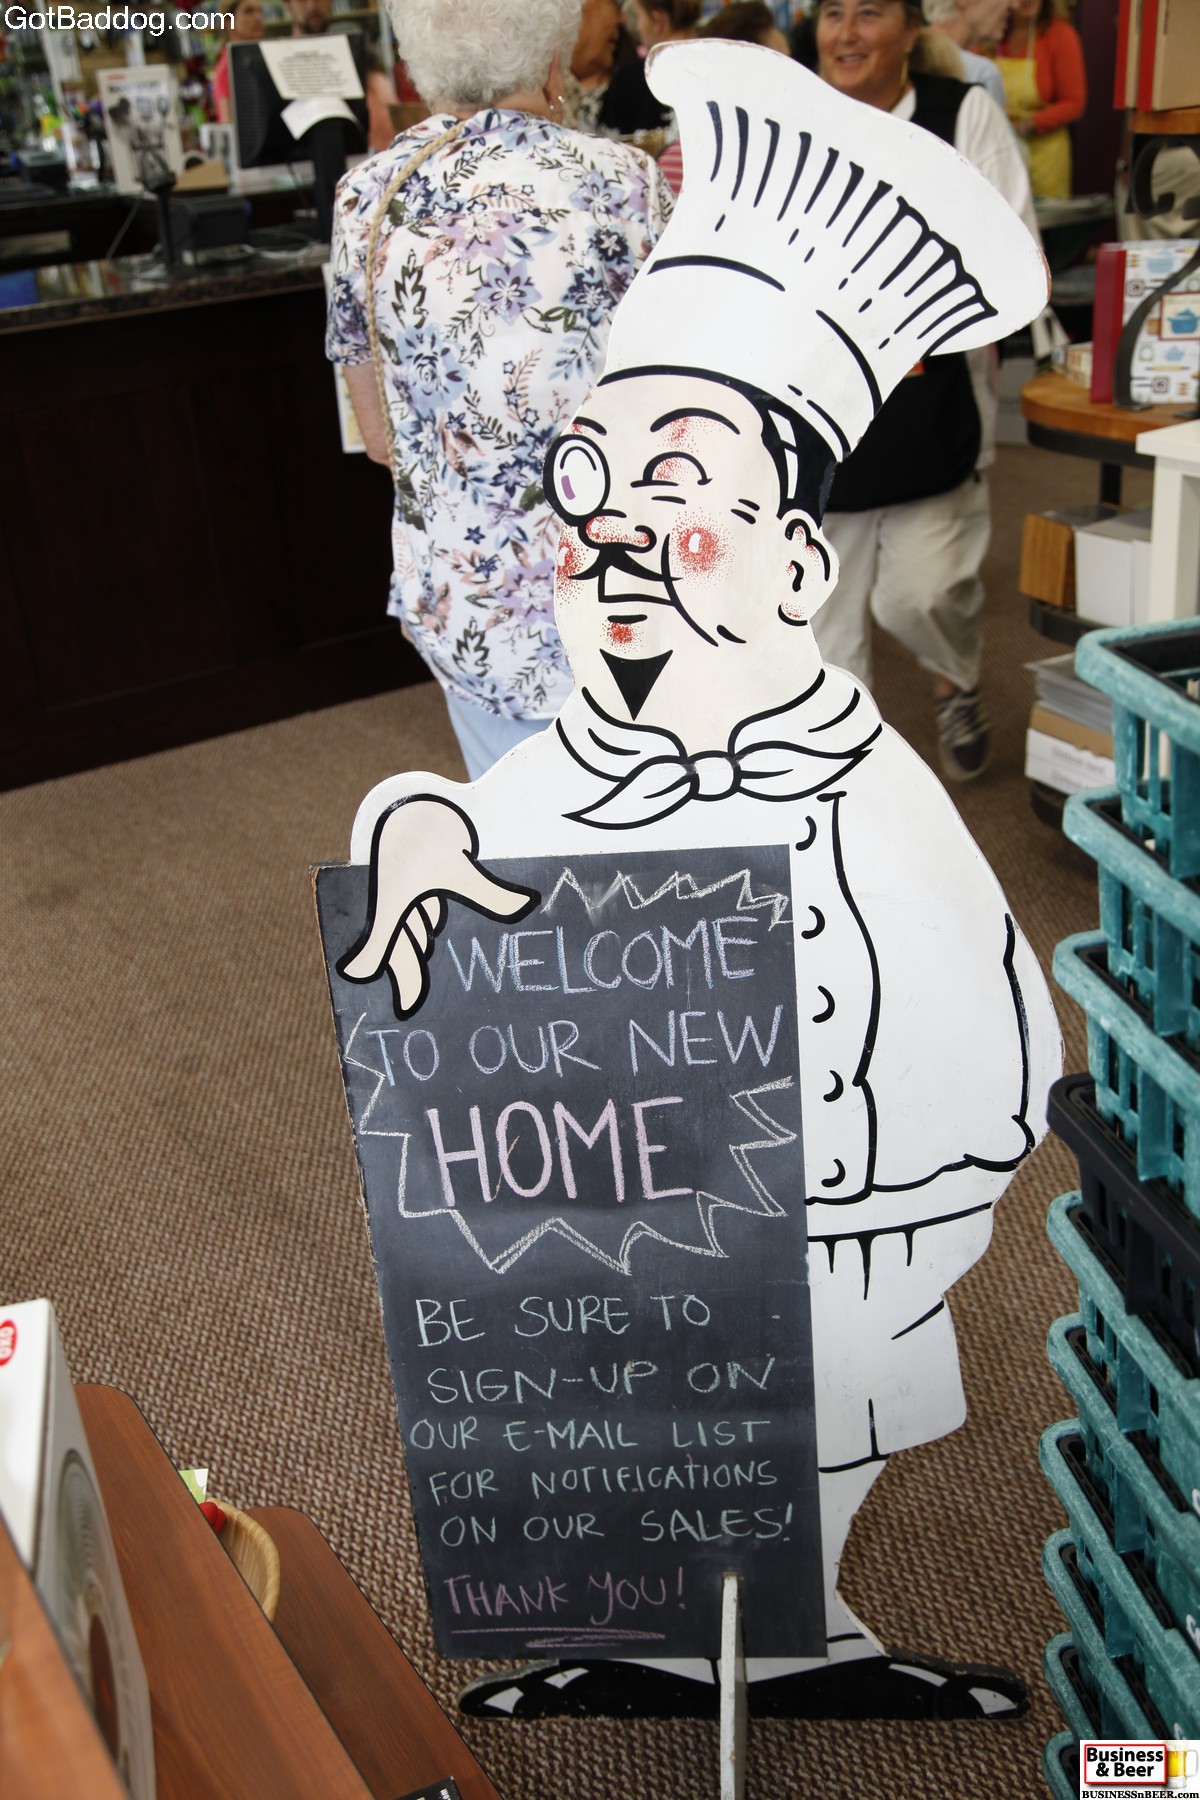 GotBaddog.com
WELCOME
TO OUR NEW
HOME
BE SURE TO
SIGN-UP ON
OUR E-MAIL LIST
FOR NOTIFICATIONS
ON OUR SALES!
THANK YOU!
OXO
Business
& Beer
BUSINESSnBEER.com